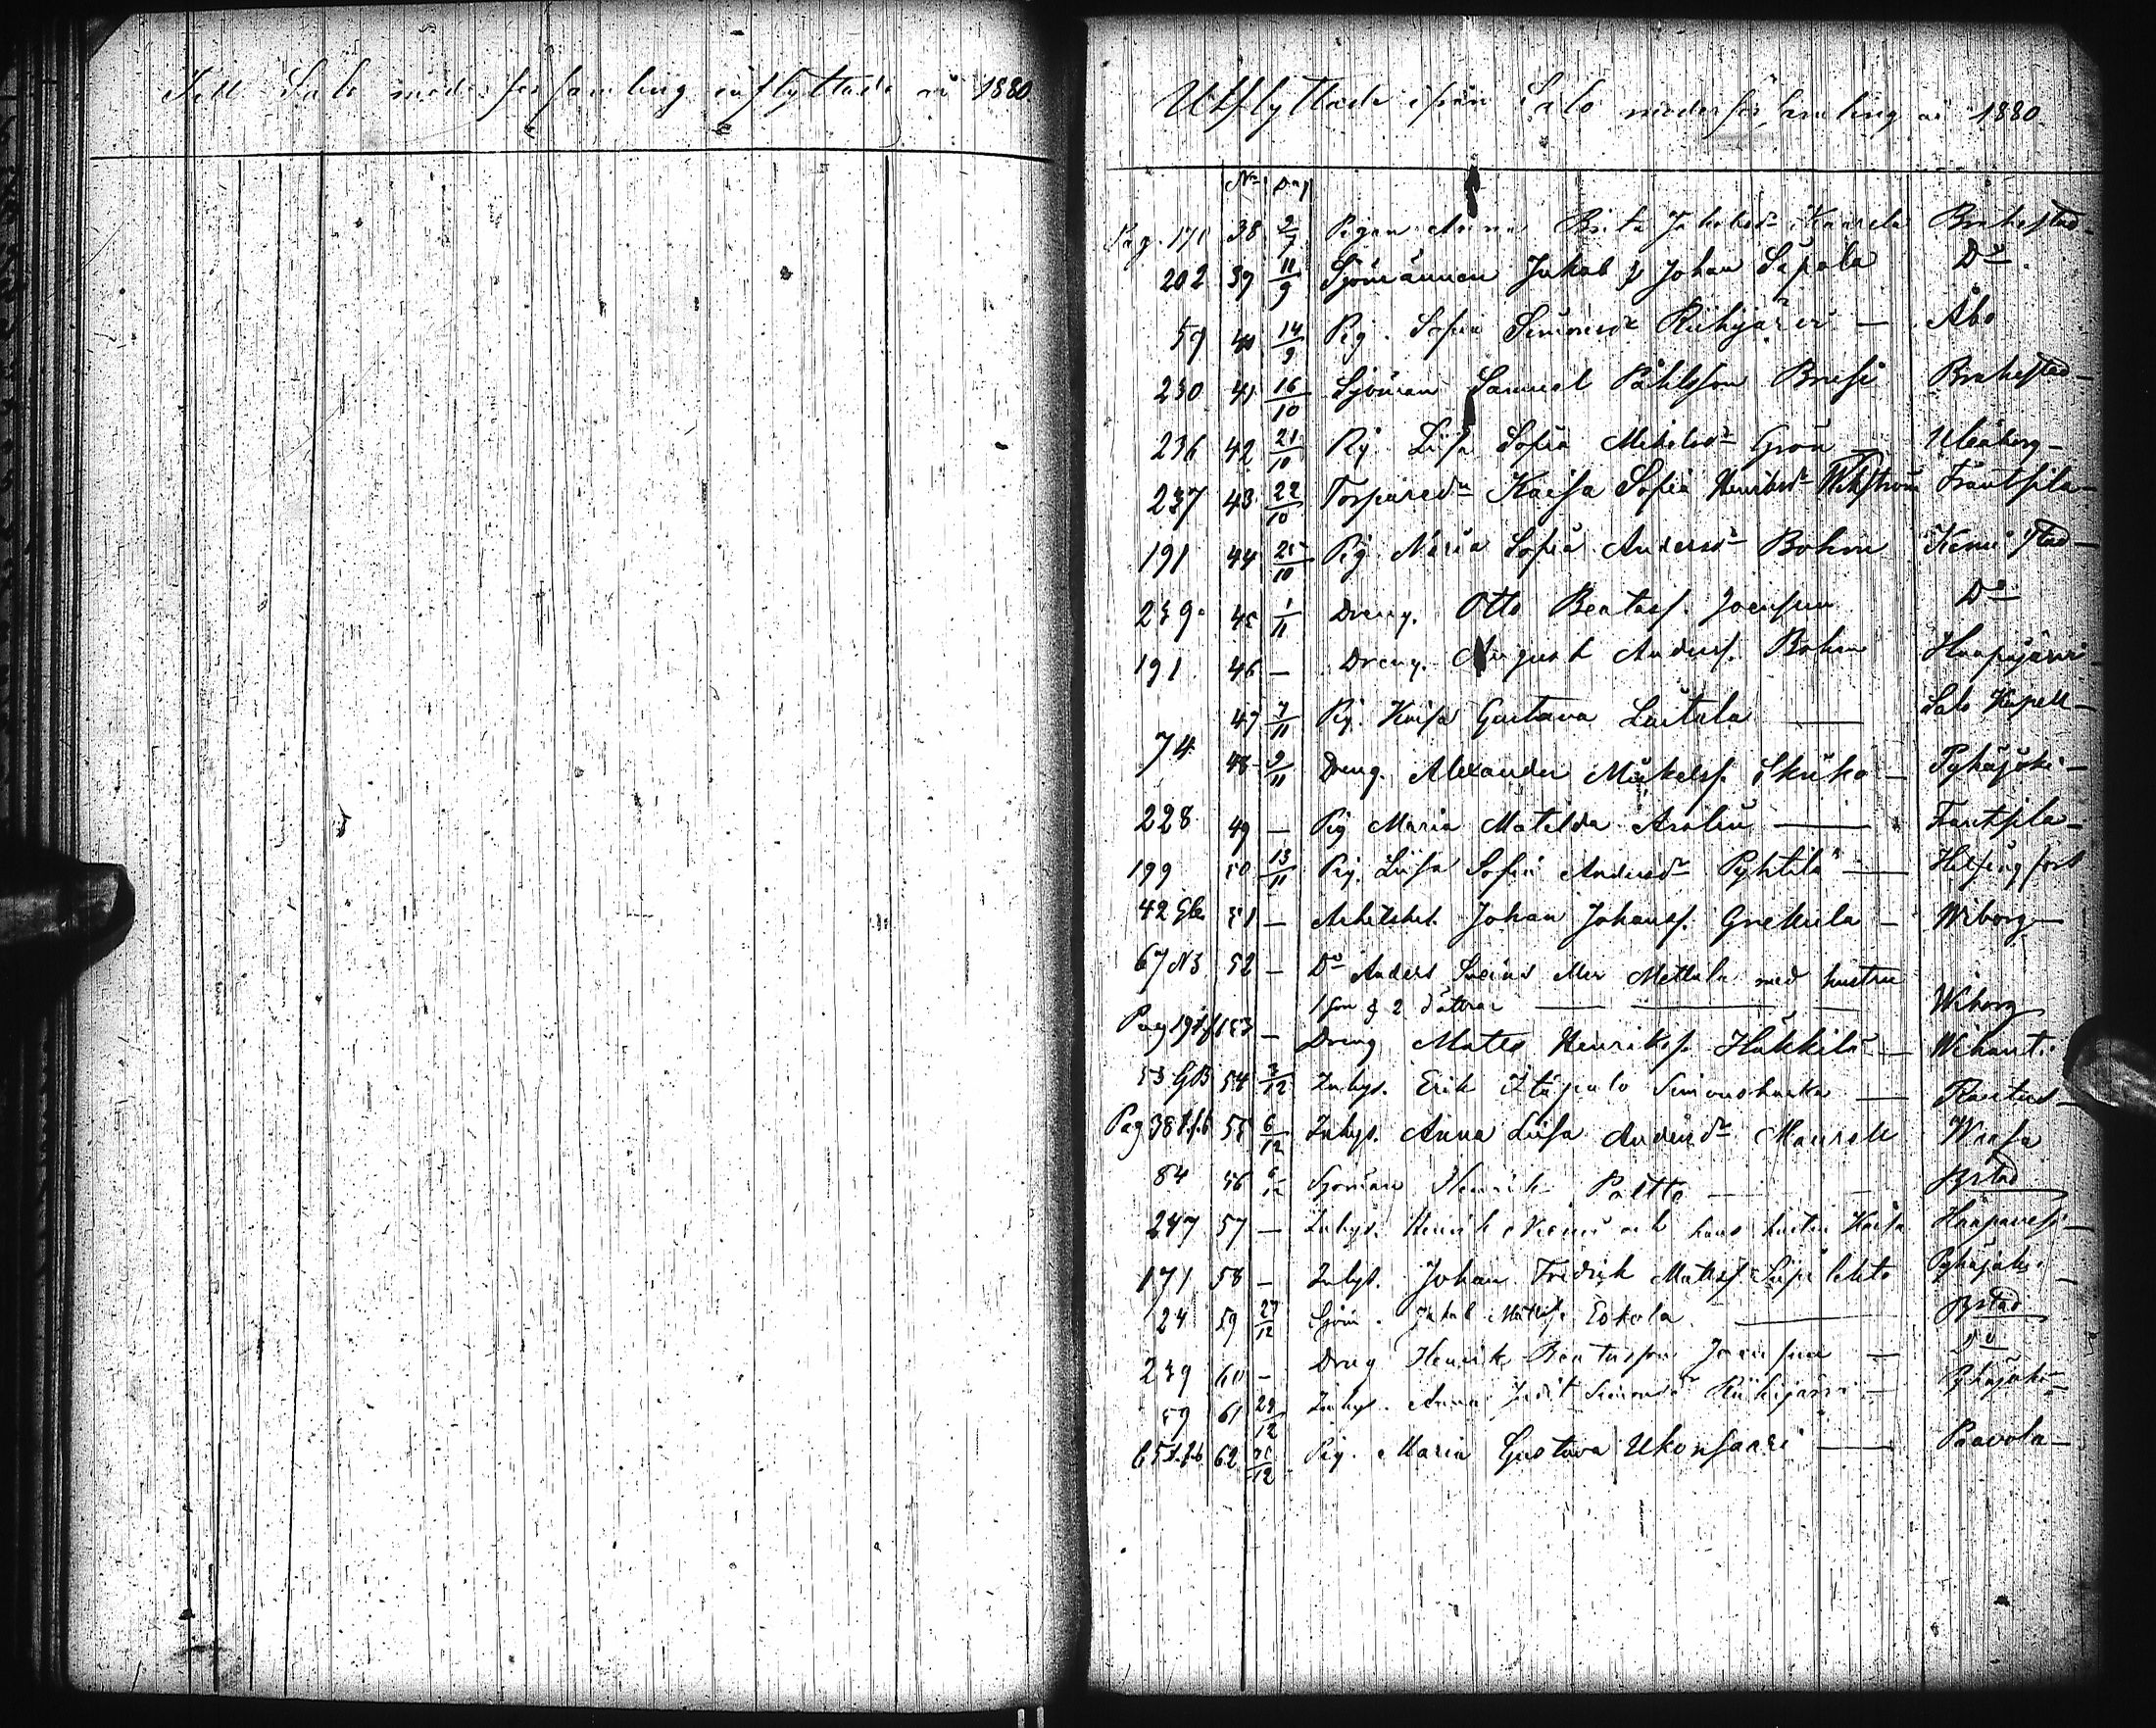 Till Salo moderförsamling inflyttade år 1880.
Utflyttade ifrån Salo moderförsamling år 1880.
No Dag
Pag. 171 38 2/7 Pigan Anna Brita Jakobsdr Brahestad
202 39 11/9 Sjömännen Jakob & Johan Sapola Do
59 40 14/9 Pig. Sofia Simonsdr Riihijärvi — Åbo
230 41 16/10 Sjöman Samuel Påhlsson Brahestad —
236 42 21/10 Pig. Liisa Sofia Mickelsdr Grön — Uleåborg —
237 43 22/10 Kaisa Sofia Henriksdr Wikström Frantsila —
191 44 25/10 Pig. Maria Sofia Andersdr Bohm Kemi stad —
239. 45 1/11 Dreng. Otto Beatass. Joensuu Do
191 46 — Dreng. August Anderss. Bohm Haapajärvi
47 7/11 Pig. Kaisa Gustava Salo Kapell —
74 48 9/11 Dreng. Alexander Mickelss. — Pyhäjoki —
228 49 — Pig Maria Matilda — Frantsila —
199 50 13/11 Pig. Liisa Sofia Andersdr Pyhtilä — Helsingfors
42 51 — Johan Johanss. Grekula — Wiborg —
67 N3 52 — Do Anders Mettala med hustru
1 son & 2 döttrar — — — Wiborg
Pag 53 — Dreng Matts Henrikss. Häkkilä — Wihanti
53 GB 54 3/12 Inhys. Erik Itäpalo —
Pag 38 55 6/12 Inhys. Anna Liisa Andersdr Wasa
84 56 Sjöman Henrik Paltto — Bstad
247 57 — Inhys. Henrik och hans hustru Kaisa Haapavesi —
171 58 — Inhys. Johan Fredrik Mattss. Pyhäjoki —
24 59 27/12 Sjöm. Jakob Mattss. Eskola — Bstad
239 60 — Dreng Henrik Beatasson Joensuu — Do
59 61 29/12 Inhys. Anna Judit Simonsdr Riihijärvi — Pyhäjoki
62 31/12 Pig. Maria Gustava Ukonsaari — Paavola —